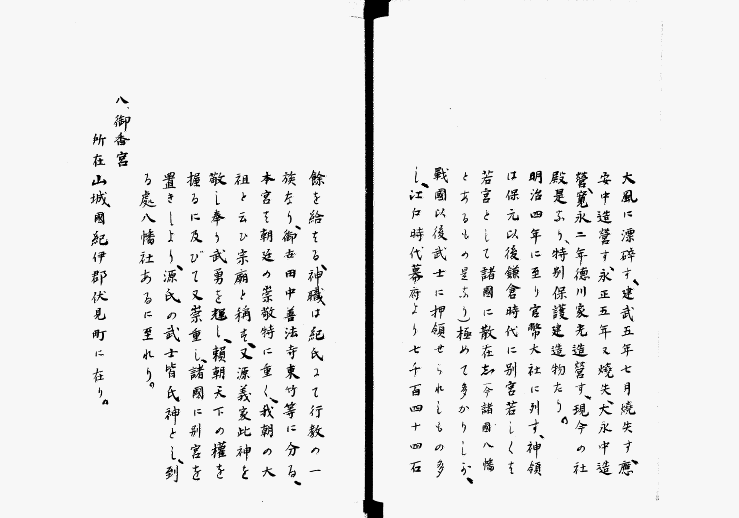 大風に漂碎す、建武五年七月燒失す、應
安中造營す、永正五年又燒失、大永中造
營、寛永二年德川家光造營す、現今の社
殿是なり、特別保護建造物たり。
明治四年に至り官幣大社に列す、神領
は保元以後鎌倉時代に別宮若しくは
若宮として諸國に散在し(今諸國八幡
とあるもの是なり)極めて多かりしが、
戰國以後武士に押領せられしもの多
し、江戸時代幕府より七千百四十四石
餘を給せる、神職は紀氏にて行教の一
族なり、御
田中善法寺東竹等に分る、
本宮は朝廷の崇敬特に重く、我朝の大
祖と云ひ宗廟と稱す、又源義家此神を
敬し奉り武勇を輝し、賴朝天下の權を
握るに及びて又崇重し、諸國に別宮を
置きしより、源氏の武士皆氏神とし、到
る處八幡社あるに至れり。
八、御香宮
所在山城國紀伊郡伏見町に在り。